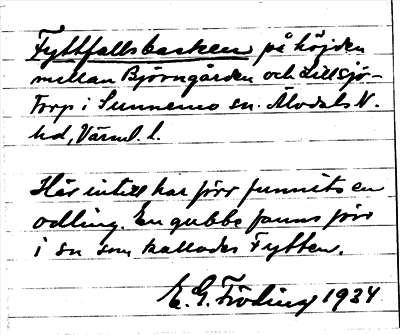 Fyttfallsbacken på höjden
mellan Björngården och Lillsjö-
torp i Sunnemo sn. Älvdals N.
hd, Värml. l.
Här intill har förr funnits en
odling. En gubbe fanns förr
i sn som kallades Fytten.
E. G. Fröding 1934